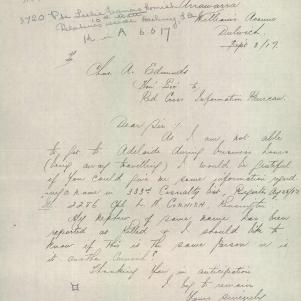 3720 Pte Leslie Francis Cornish
10th Batt
M in A 6.5.17
Arrawarra
Williams Avenue
Dulwich.
Sept 3/17.
To
Chas A. Edmunds
Hon: Sec: to
Red Cross Information Bureau.
Dear Sir:
As I am not able
to get to Adelaide during business hours
(being away travelling) I would be grateful
if you could give me some information regard
ing a name in 333rd Casualty list, Register
L. H. CORNISH,
My nephew of same name has been
reported as killed & I should like to
know if this is the same person or is
it another Cornish?
Thanking You in anticipation
I beg to remain
Yours Sincerely